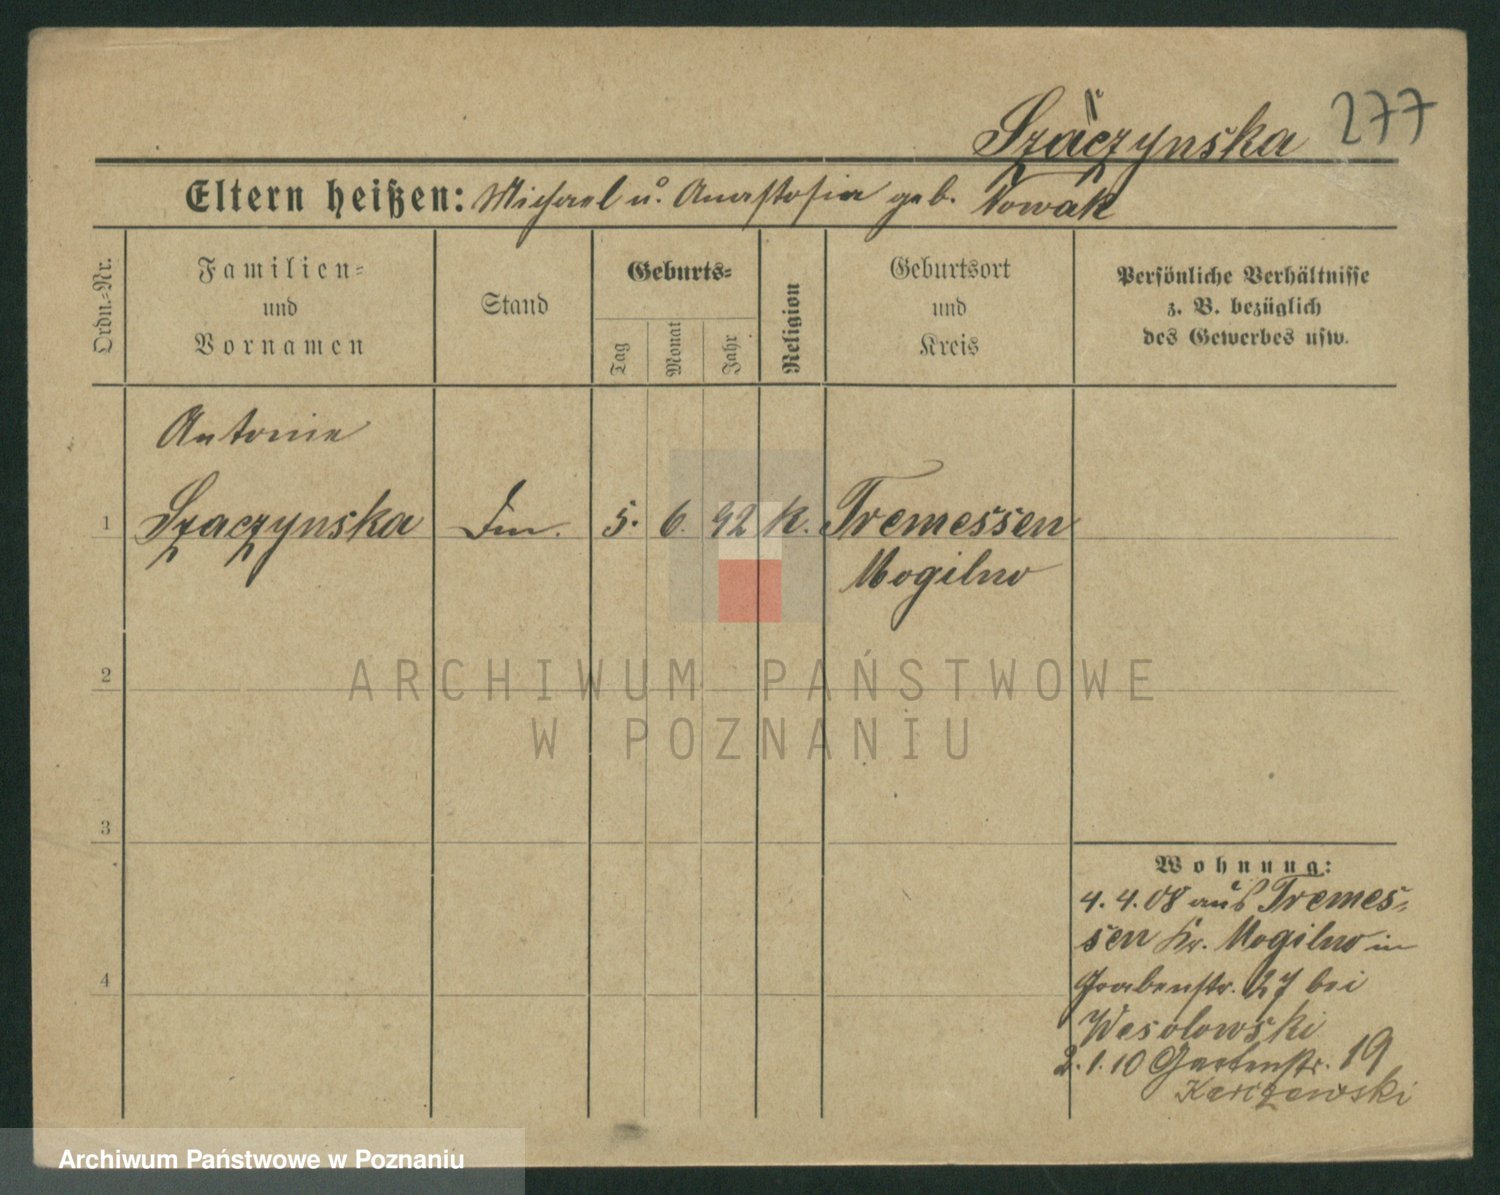 Szaczynska 277
Eltern heißen: Michael u. Anastasia geb. Nowak
Ordn.-Nr.
Familien-
und
Vornamen
Stand
Geburts-
Tag
Monat
Jahr
Religion
Geburtsort
und
Kreis
Persönliche Verhältnisse
z. B. bezüglich
des Gewerbes usw.
Antonie
1 Szaczynska 5. 6. 92 k. Tremessen
Mogilno
2
3
4
Wohnung:
4. 4. 08 aus Tremes-
sen Kr. Mogilno in
Grabenstr. 27 bei
Wesolowski
2. 1. 10 Gartenstr. 19
ARCHIWUM PAŃSTWOWE
W POZNANIU
Archiwum Państwowe w Poznaniu